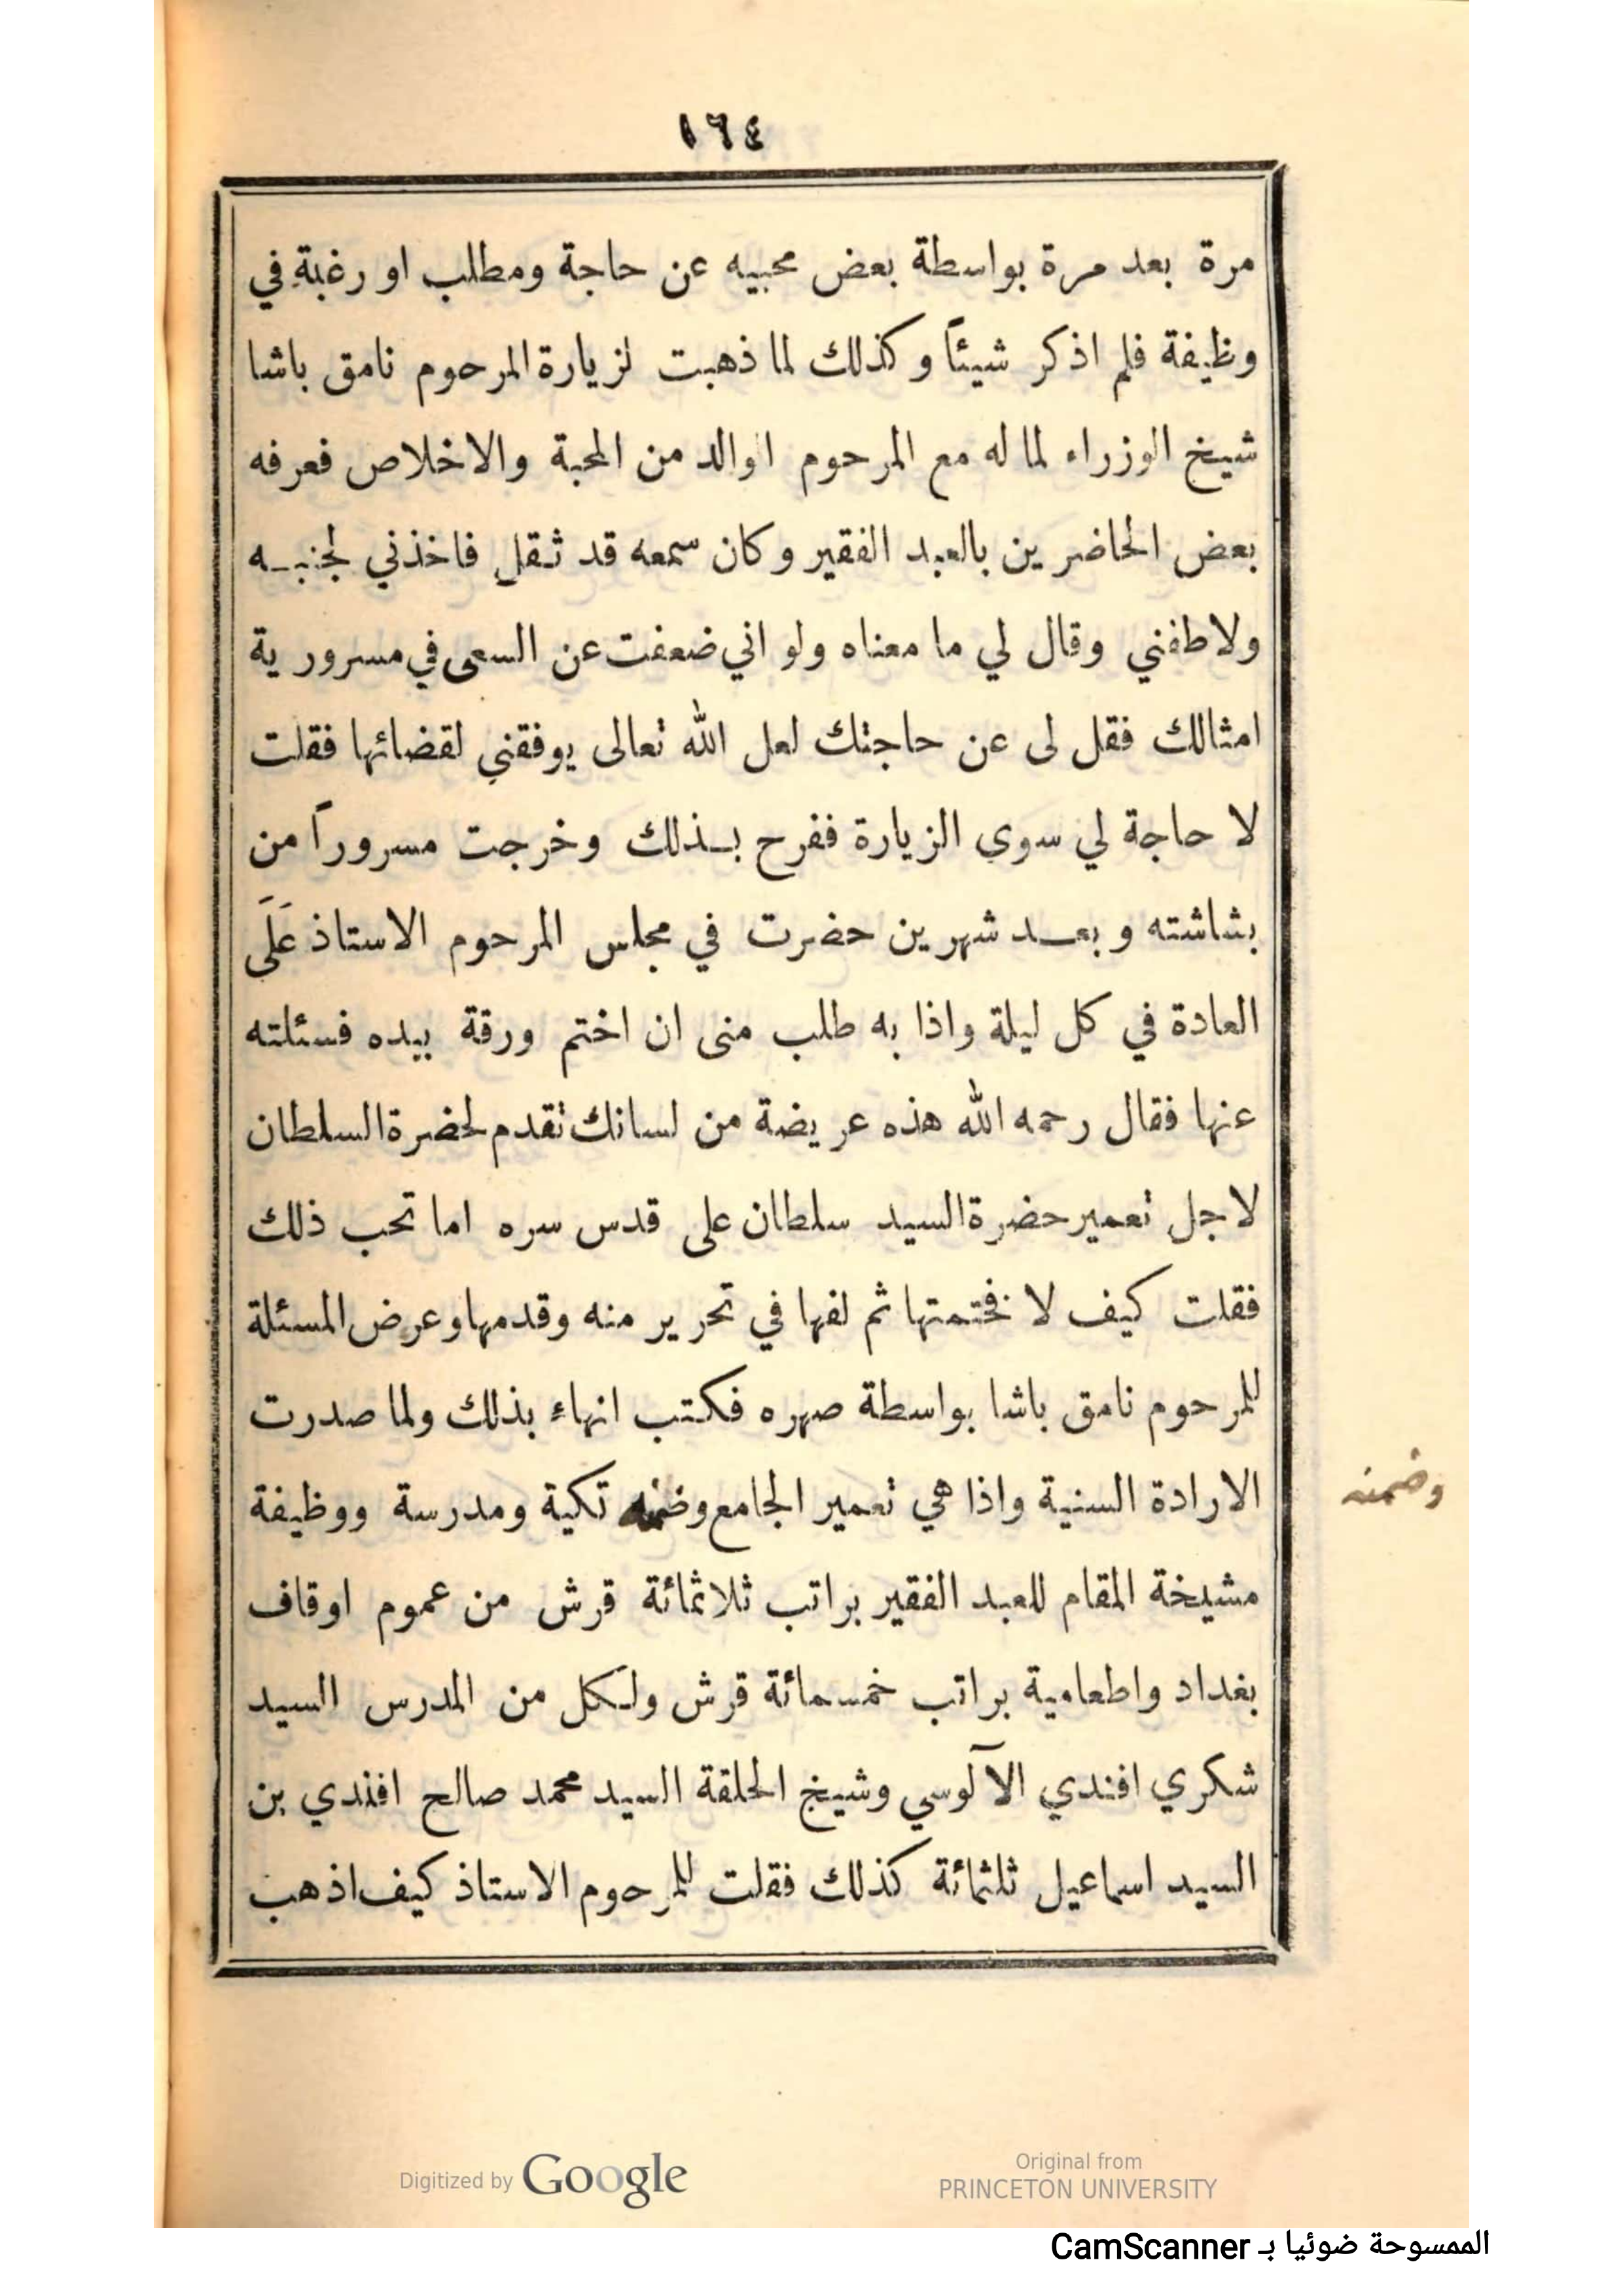 ١٦٤
مرة بعد مرة بواسطة بعض محبيه عن حاجة ومطلب او رغبةٍ في
وظيفة فلم اذكر شيئاً وكذلك لما ذهبت لزيارة المرحوم نامق باشا
شيخ الوزراء لما له مع المرحوم الوالد من المحبة والاخلاص فعرفه
بعض الحاضرين بالعبد الفقير وكان سمعه قد ثقل فاخذني لجنبـه
ولاطفني وقال لي ما معناه ولو اني ضعفت عن السعى في مسرورية
امثالك فقل لى عن حاجتك لعل الله تعالى يوفقني لقضائها فقلت
لا حاجة لي سوى الزيارة ففرح بـذلك وخرجت مسروراً من
بشاشته وبعـد شهرين حضرت في مجلس المرحوم الاستاذ عَلَى
العادة في كل ليلة واذا به طلب منى ان اختم ورقة بيده فسئلته
عنها فقال رحمه الله هذه عريضة من لسانك تقدم لحضرة السلطان
لاجل تعمير حضرة السيد سلطان على قدس سره اما تحب ذلك
فقلت كيف لا فختمتها ثم لفها في تحرير منه وقدمها وعرض المسئلة
للمرحوم نامق باشا بواسطة صهره فكتب انهاء بذلك ولما صدرت
الارادة السنية واذا هي تعمير الجامع وضمنه تكية ومدرسة ووظيفة
وضمنه
مشيخة المقام للعبد الفقير براتب ثلاثمائة قرش من عموم اوقاف
بغداد واطعامية براتب خمسمائة قرش ولكل من المدرس السيد
شكري افندي الآلوسي وشيخ الحلقة السيد محمد صالح افندي بن
السيد اسماعيل ثلثمائة كذلك فقلت للمرحوم الاستاذ كيف اذهب
Digitized by Google
Original from
PRINCETON UNIVERSITY
الممسوحة ضوئيا بـ CamScanner